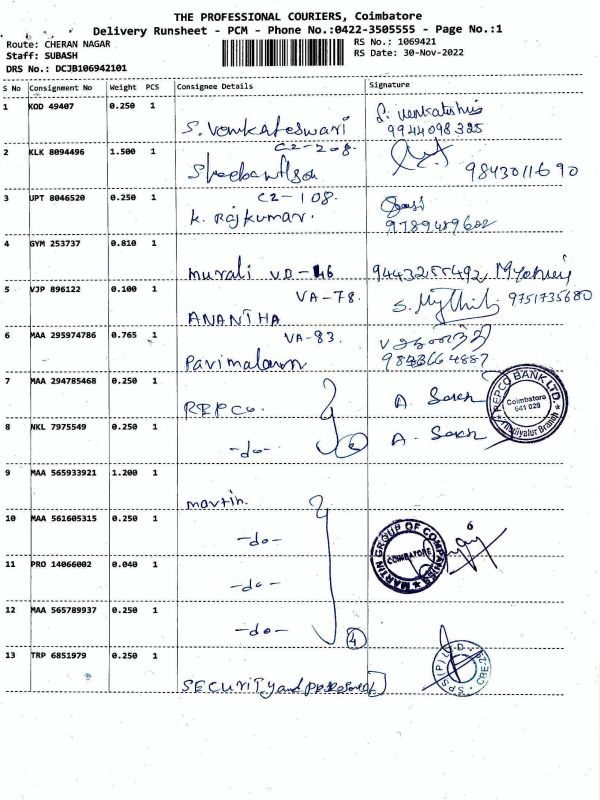 THE PROFESSIONAL COURIERS, Coimbatore
Delivery Runsheet - PCM - Phone No.:0422-3505555 - Page No.:1
Route: CHERAN NAGAR
RS No.: 1069421
Staff: SUBASH
RS Date: 30-Nov-2022
DRS No.: DCJB106942101
S No Consignment No Weight PCS Consignee Details Signature
1 KOD 49407 0.250 1
S. Venkateswari
9944098325
2 KLK 8094496 1.500 1 C2-208.
9843011690
3 UPT 8046520 0.250 1 C2-108.
K. Rajkumar.
9789489602
4 GYM 253737 0.810 1
Murali VD-46 9443255492
5 VJP 896122 0.100 1 VA-78.
ANANTHA
S. Mythili 9751735680
6 MAA 295974786 0.765 1 VA-83.
Parimalam
9843664887
7 MAA 294785468 0.250 1
REPCO. A.
REPCO BANK LTD.
Coimbatore
641 029
8 NKL 7975549 0.250 1
-do- 2 A.
9 MAA 565933921 1.200 1
martin.
10 MAA 561605315 0.250 1
-do-
MARTIN GROUP OF COMPANIES
COIMBATORE
11 PRO 14066002 0.040 1
-do-
12 MAA 565789937 0.250 1
-do- 4
13 TRP 6851979 0.250 1
SECURITY and